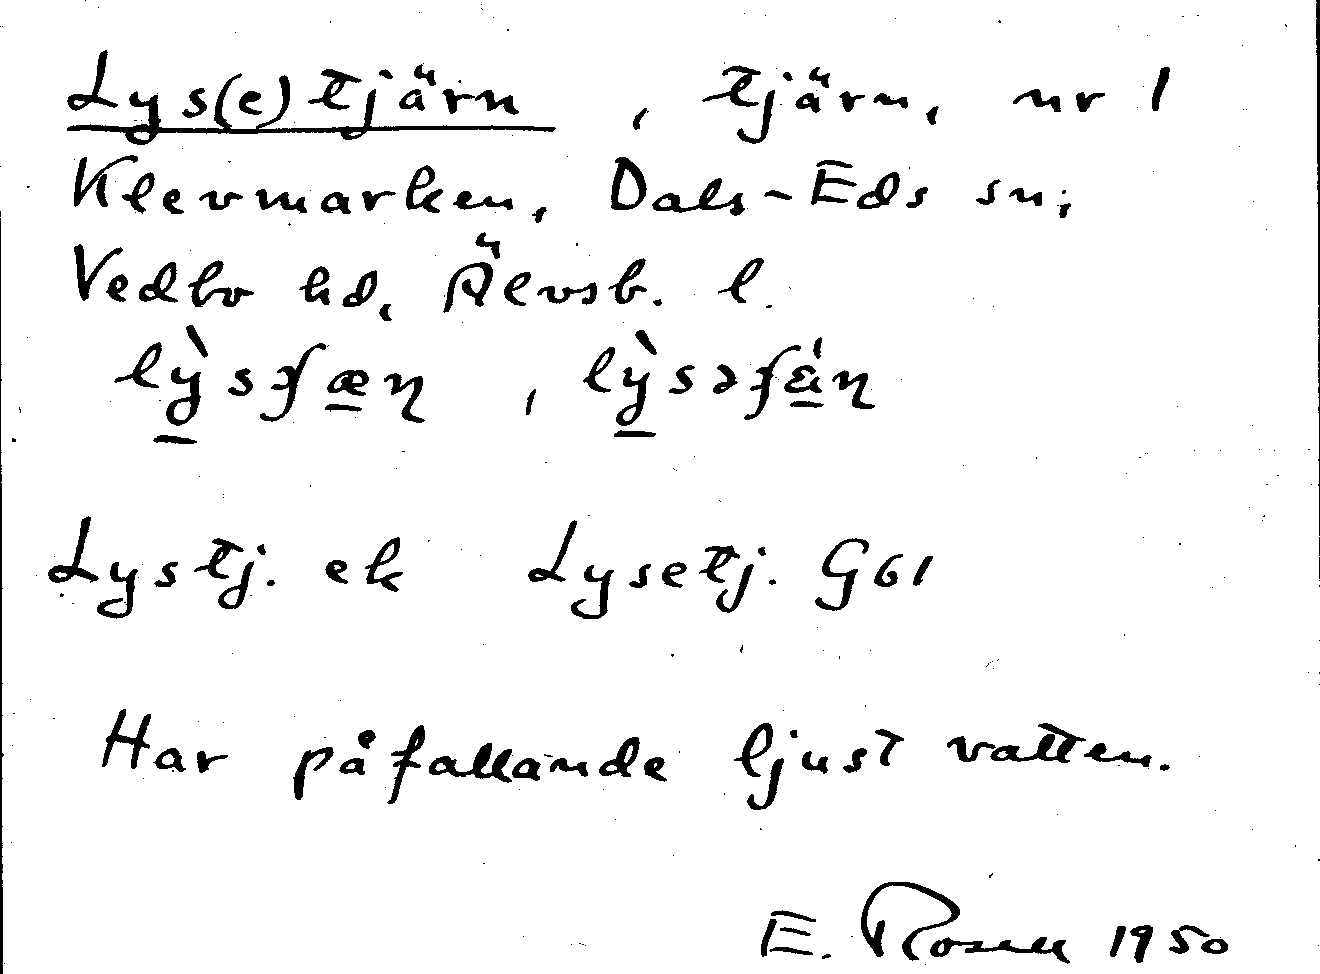 Lys(e)tjärn, tjärn, nr 1
Klevmarken, Dals-Eds sn;
Vedbo hd, Älvsb. l.
Lystj. ek Lysetj. G61
Har påfallande ljust vatten.
E. Rosell 1950